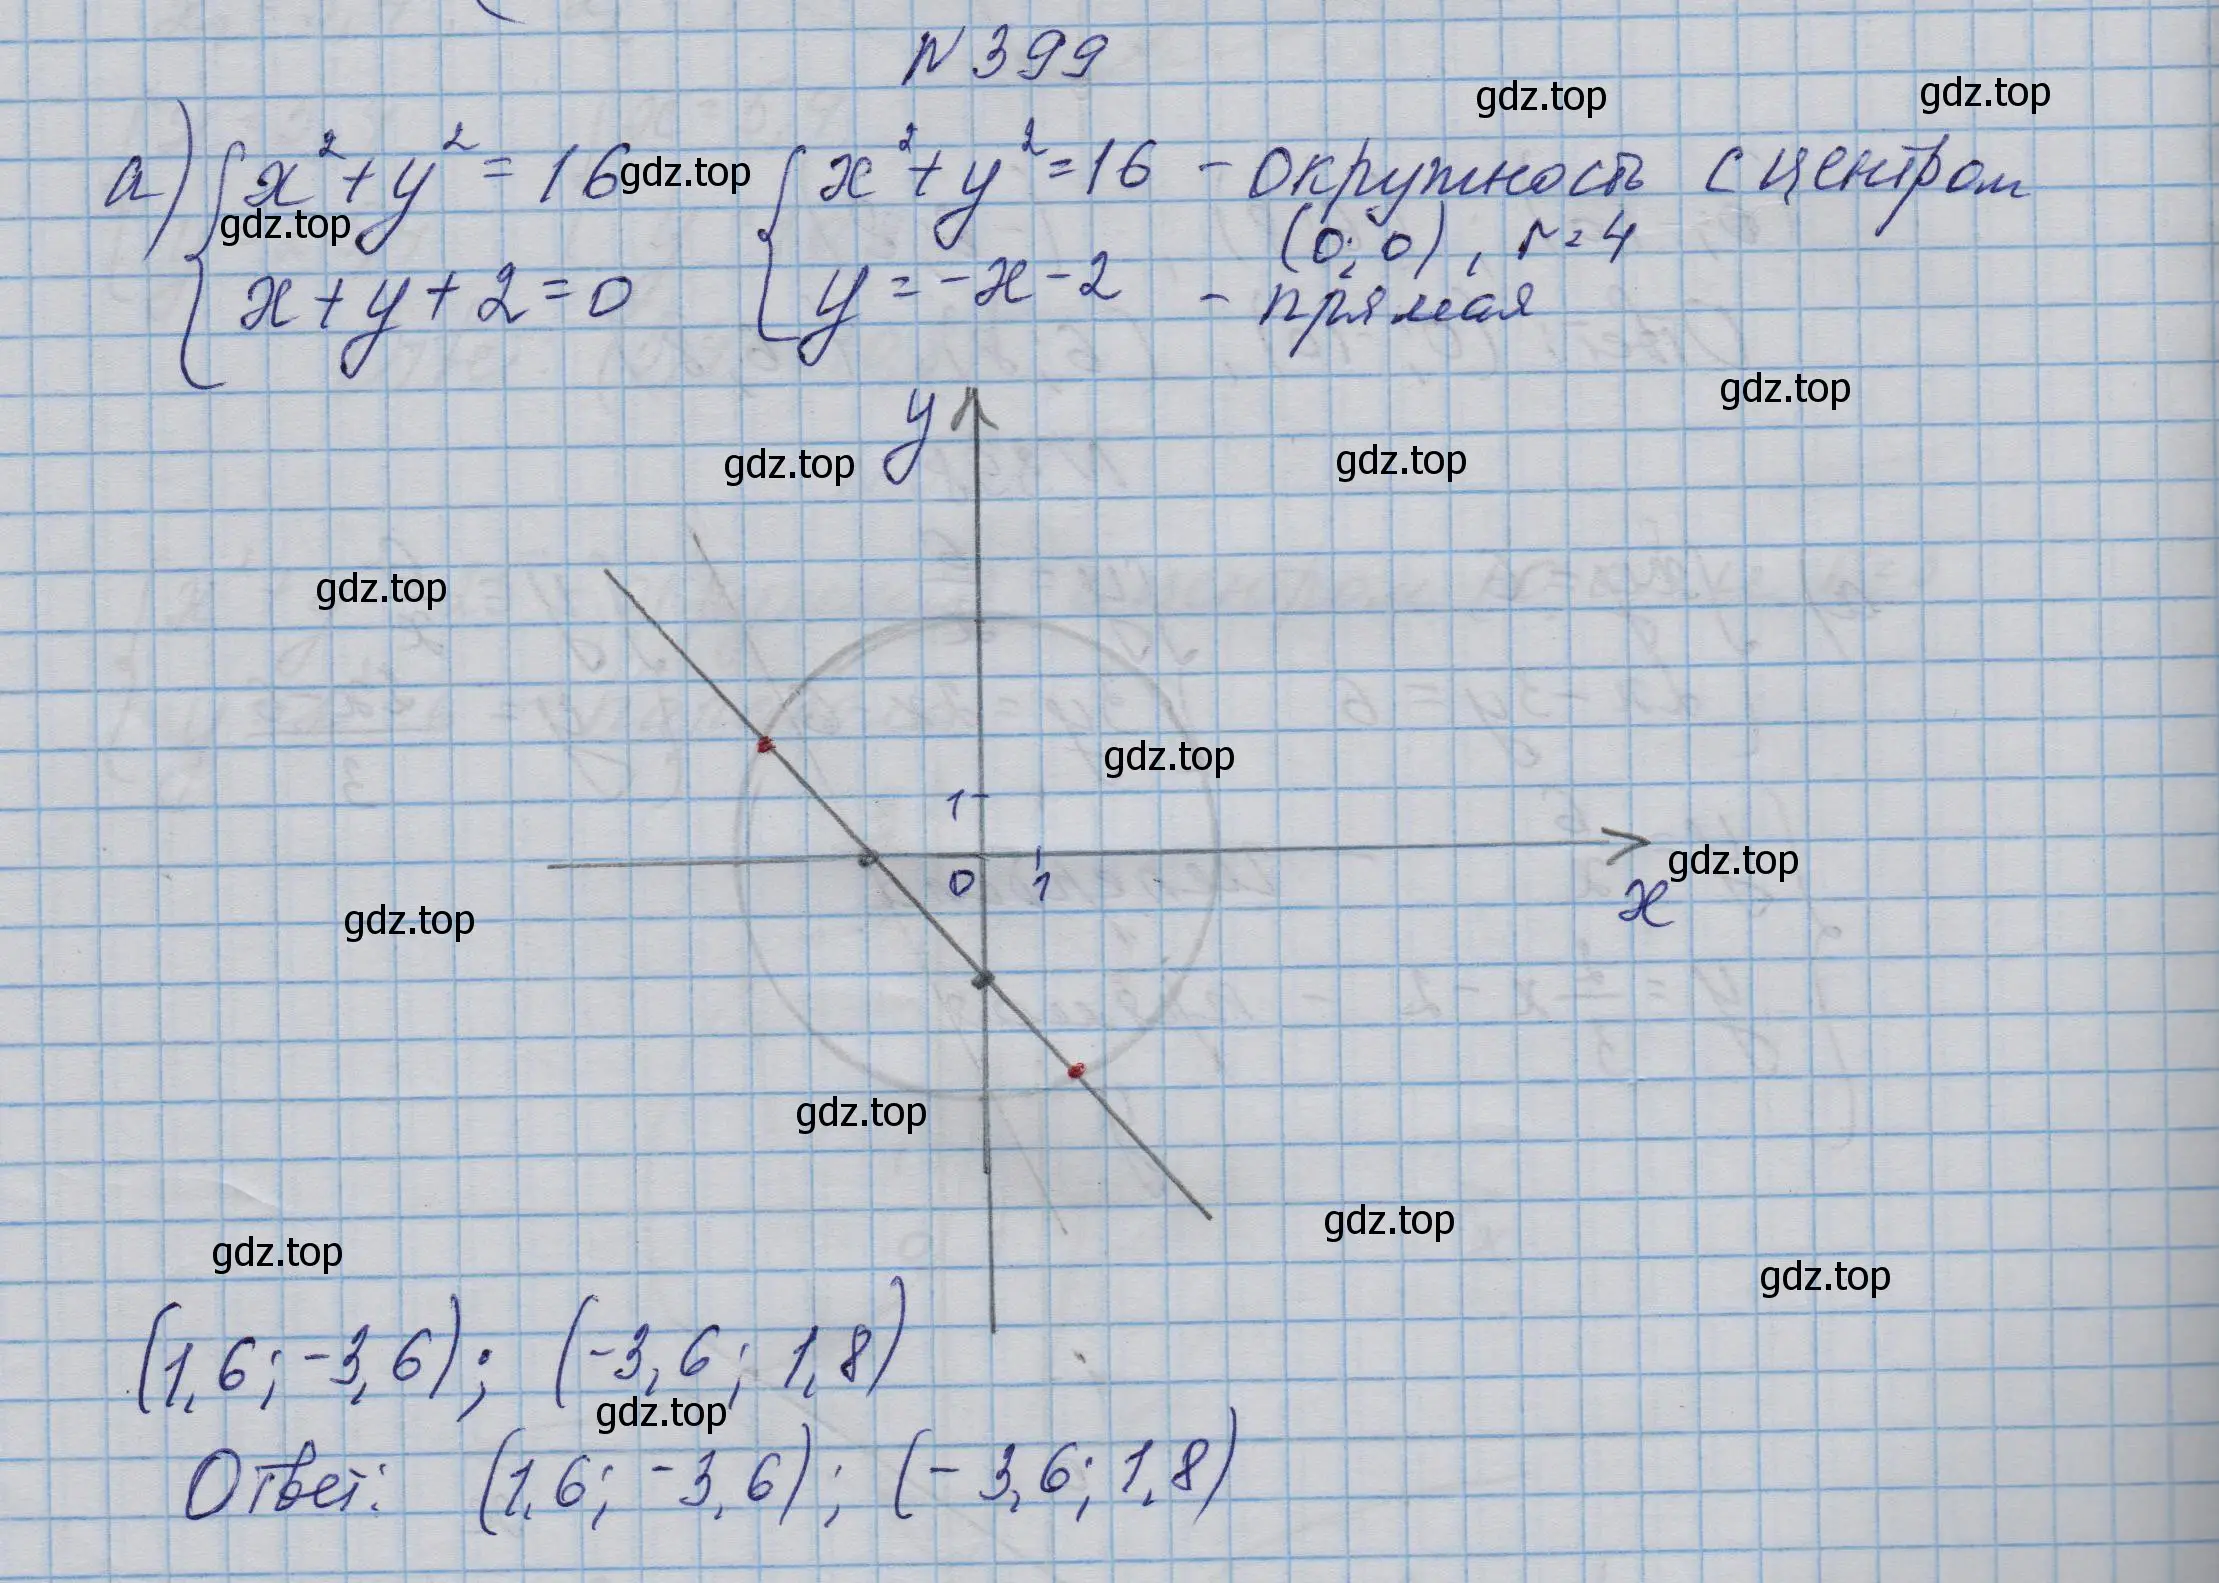 N 399
gdz.top gdz.top
а) { x² + y² = 16 gdz.top { x² + y² = 16 - окружность с центром
gdz.top (0; 0), r = 4
x + y + 2 = 0 y = -x - 2 - прямая
gdz.top
y
gdz.top gdz.top
gdz.top
gdz.top
1
gdz.top
0 1
x
gdz.top
gdz.top
gdz.top
gdz.top
gdz.top
(1,6; -3,6); (-3,6; 1,8)
gdz.top
gdz.top
Ответ: (1,6; -3,6); (-3,6; 1,8)